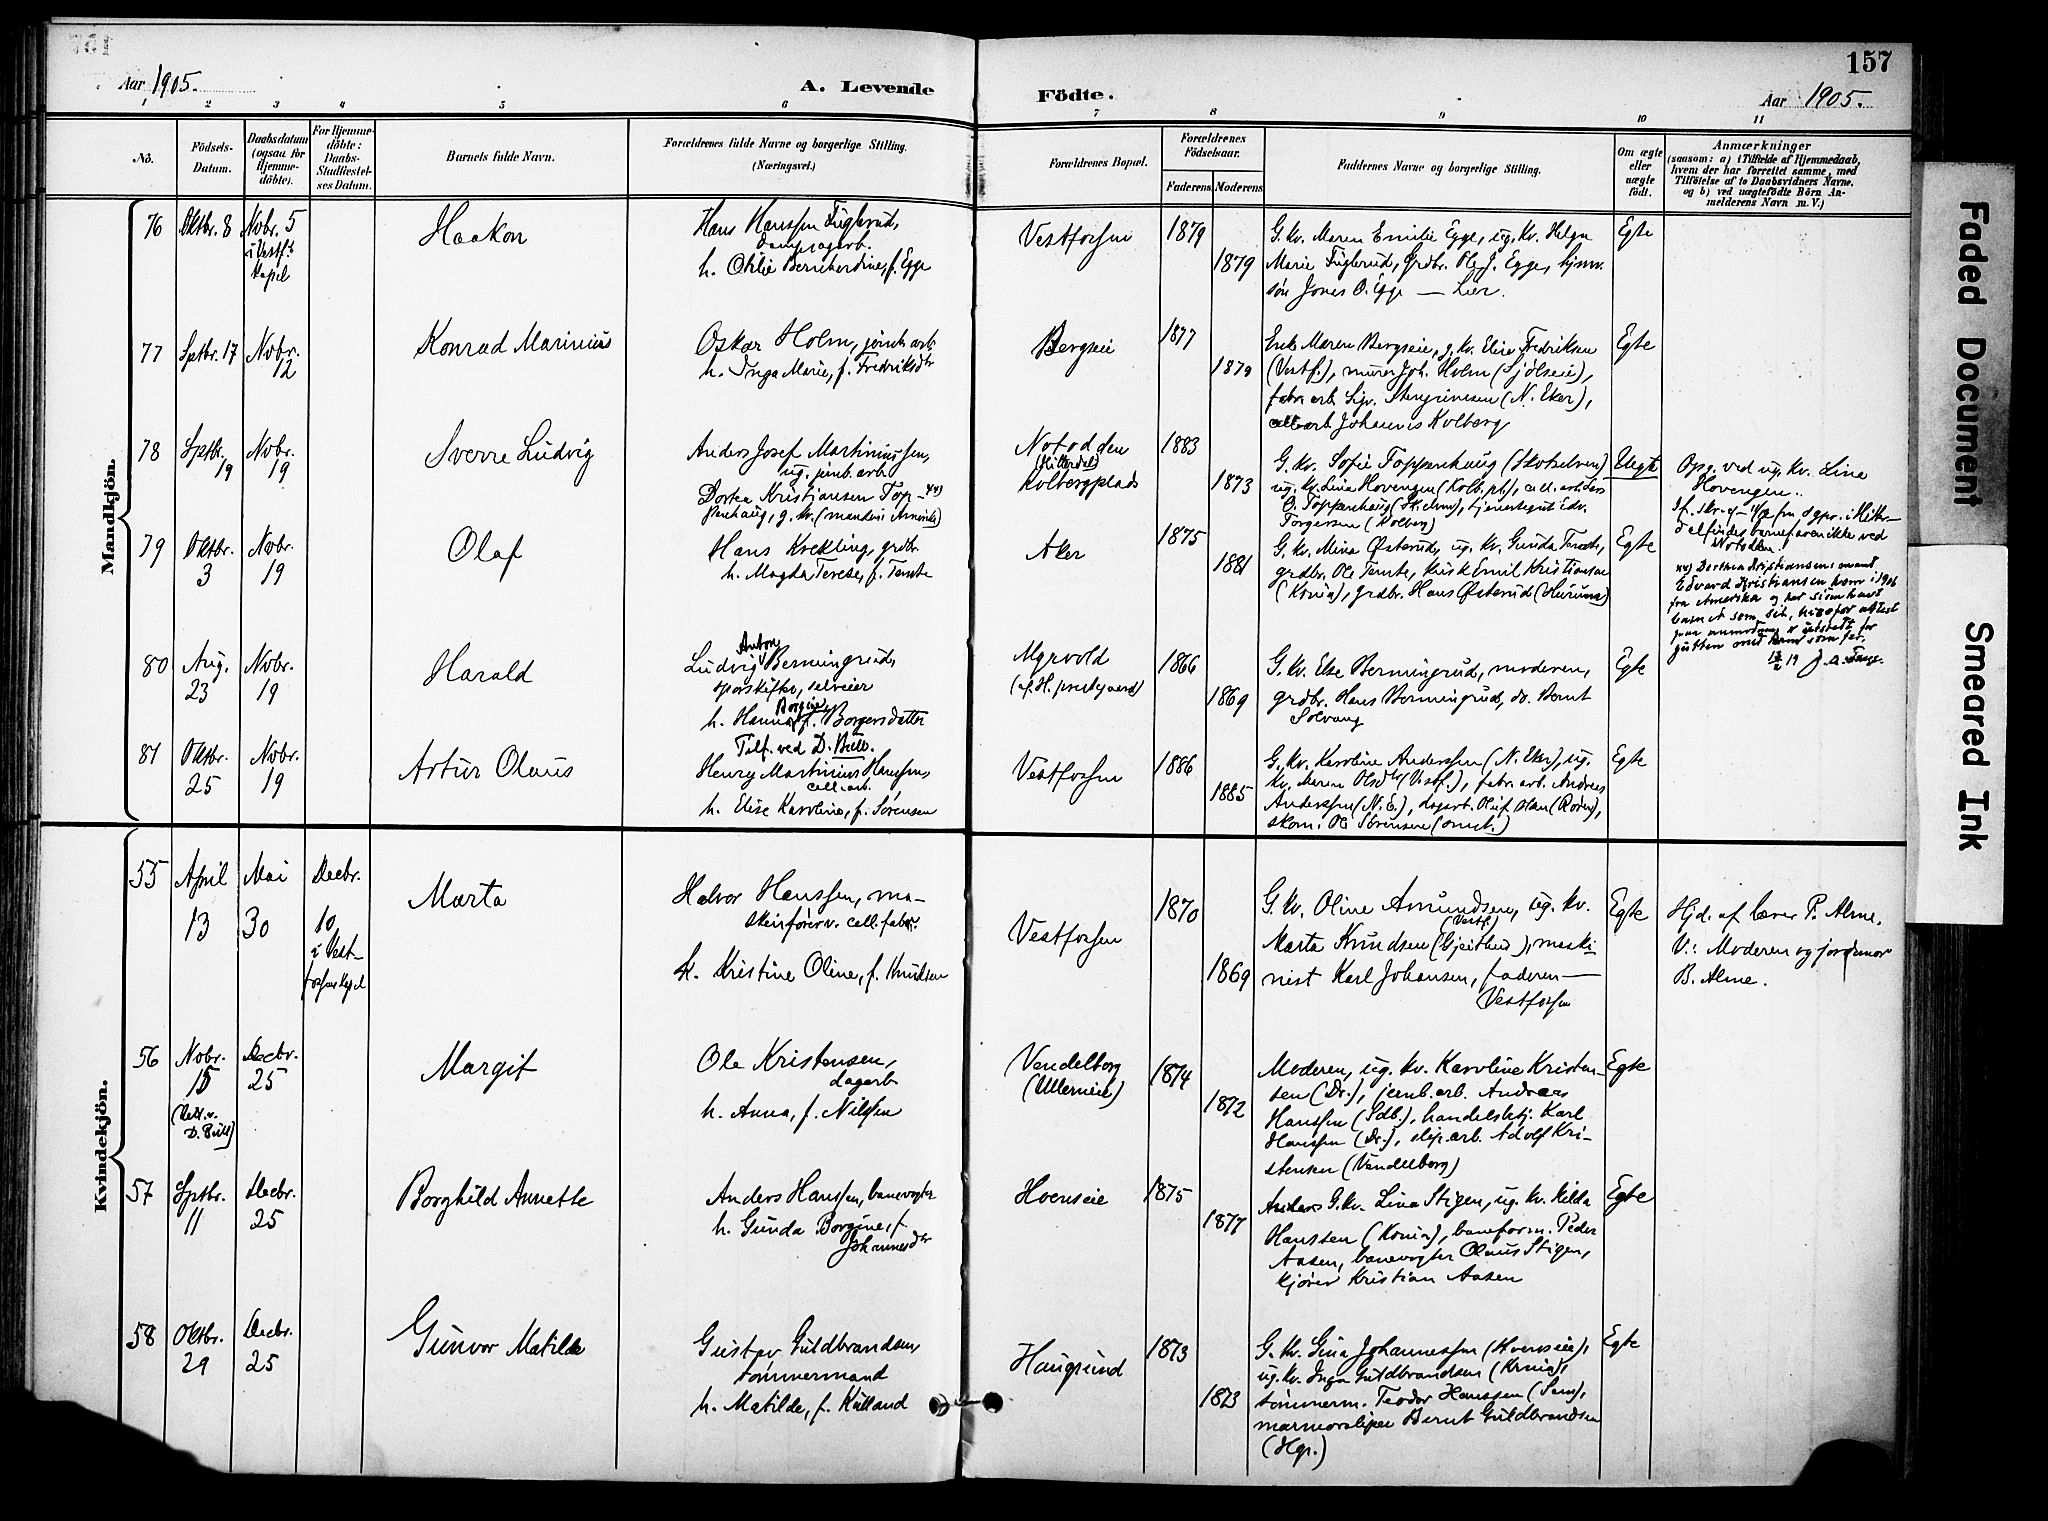 157
Aar 1905.
A. Levende Födte.
Aar 1905.
1 2 3 4 5 6 7 8 9 10 11
No.
Födsels-
Datum.
Daabsdatum
(ogsaa for
Hjemme-
döbte).
For Hjemme-
döbte:
Daabs-
Stadfæstel-
ses Datum.
Barnets fulde Navn.
Forældrenes fulde Navne og borgerlige Stilling.
(Næringsvei.)
Forældrenes Bopæl.
Forældrenes
Födselsaar.
Faderens. Moderens.
Faddernes Navne og borgerlige Stilling.
Om ægte
eller
uægte
födt.
Anmærkninger
(saasom: a) i Tilfælde af Hjemmedaab,
hvem der har forrettet samme, med
Tilföielse af to Daabsvidners Navne,
og b) ved uægtefödte Börn An-
melderens Navn m. V.)
Mandkjön.
76 Oktbr. 8 Novbr. 5
i Vestf.
kapel
Haakon
Hans Hanssen Fuglerud,
dampsagarb.
h. Otilie Bernhardine, f. Egge
Vestfossen 1879
1879
G. kv. Maren Emilie Egge, ug. kv. Helga
Marie Fuglerud, Grdbr. Ole J. Egge,
søn Jones O. Egge — Lier.
Egte
77 Sptbr. 17 Novbr.
12
Konrad Marinius
Oskar Holm, jernb. arb.
h. Inga Marie, f. Fredriksdtr
Bergseie 1877
Enk. Maren Bergseie, g. kv. Elise Fredriksen
(Vestf.), murer Joh. Holm (Sjölseie),
fabr. arb. Sigv. Stengrimsen (N. Eker),
cell. arb. Johannes Kolberg
Egte
78 Sptbr.
19 Novbr.
19
Sverre Ludvig
Anders Josef Martiniussen,
ug. jernb. arb.
Dortea Kristiansen Top-
penhaug, g. kv. (manden i Amerika)
Notodden
(Hitterdal)
Kolbergplads
1883
1873
G. kv. Sofie Toppenhaug (Skotselven)
ug. kv. Lina Hovengen (Kolb. pl.), cell. arb. Lars
O. Toppenhaug (Sk. elven), tjenestegut Edv.
Torgersen (Kolberg)
Uegte
Opg. ved ug. kv. Lina
Hovengen.
If. skr. fra sgpr. i Hitter-
dal findes barnefaren ikke ved
Notodden.
xx) Dorthea Kristiansens mand
Edvard Kristiansen kom i 1906
fra Amerika og har siden havt
barnet som sit, hvorfor attest
paa anmodning er udstedt for
gutten med ham som far.
79 Oktbr.
3 Novbr.
19
Olaf
Hans Krekling, grdbr.
h. Magda Terese, f. Temte
Aker 1875
1881
G. kv. Mina Østerud, ug. kv. Gunda Temte,
grdbr. Ole Temte, kusk Emil Kristiansen
(Kr.nia), grdbr. Hans Østerud (Hurum)
Egte
80 Aug.
23 Novbr.
19
Harald
Ludvig Anton Bermingrud,
sporskifter, selveier
h. Hanna Borgine, f. Borgersdatter
Myrvold
(u. H. prestegaard)
1866
1869
G. kv. Else Bermingrud, moderen,
grdbr. Hans Bermingrud, do. Bernt
Solvang
Egte
81 Oktbr.
25 Novbr.
19
Artur Olaus
Tilf. ved D. Bull.
Henry Martinius Hanssen,
cell. arb.
h. Elise Karoline, f. Sørensen
Vestfossen 1886
1885
G. kv. Karoline Anderssen (N. Eker), ug.
kv. Maren Olsdtr (Vestf.), fabr. arb. Andreas
Anderssen (N. E.), dagarb. Oluf Olsen (Roden),
skom. Ole Sörensen (omst.)
Egte
Kvindekjön.
55 April
13
Mai
30
Decbr.
10
i Vest-
fossen kapel
Marta
Halvor Hanssen, ma-
skinförer v. cell. fabr.
h. Kristine Oline, f. Knudsen
Vestfossen
1870
1869
G. kv. Oline Amundsen, ug. kv.
(Vestf.)
Marta Knudsen (Gjeithus), maski-
nist Karl Johansen, faderen —
Vestfossen
Egte
Hjd. af lærer P. Alme.
V.: Moderen og jordmor
B. Alme.
56 Novbr.
15
D. Bull)
Decbr.
25
Margit
Ole Kristensen,
dagarb.
h. Anna, f. Nilssen
Vendelborg
(Ullerneie)
1874
1872
Moderen, ug. kv. Karoline Kristen-
sen (Dr.), jernb. arb. Andreas
Hanssen (Sdb.), handelsbtj. Karl
Hanssen (Dr.), slip. arb. Adolf Kri-
stensen (Vendelborg)
Egte
57 Sptbr.
11
Decbr.
25
Borghild Annette
Anders Hanssen, banevogter
h. Gunda Borgine, f.
Johannesdtr
Hvenseie
1875
1877
G. kv. Lina Stigen, ug. kv. Hilda
Hanssen (Kr.nia), baneform. Peder
Aasen, banevogter Olaus Stigen,
kjörer Kristian Aasen
Egte
58 Oktbr.
29
Decbr.
25
Gunvor Matilde
Gustav Guldbrandsen,
tömmermand
h. Matilde, f. Kulland
Haugsund
1873
1873
G. kv. Gina Johannessen (Hvenseie),
ug. kv. Inga Guldbrandsen (Kr.nia),
tömmerm. Teodor Hanssen (Sem),
marmorsliper Bernt Guldbrandsen
(Hgs.)
Egte
Faded Document
Smeared Ink